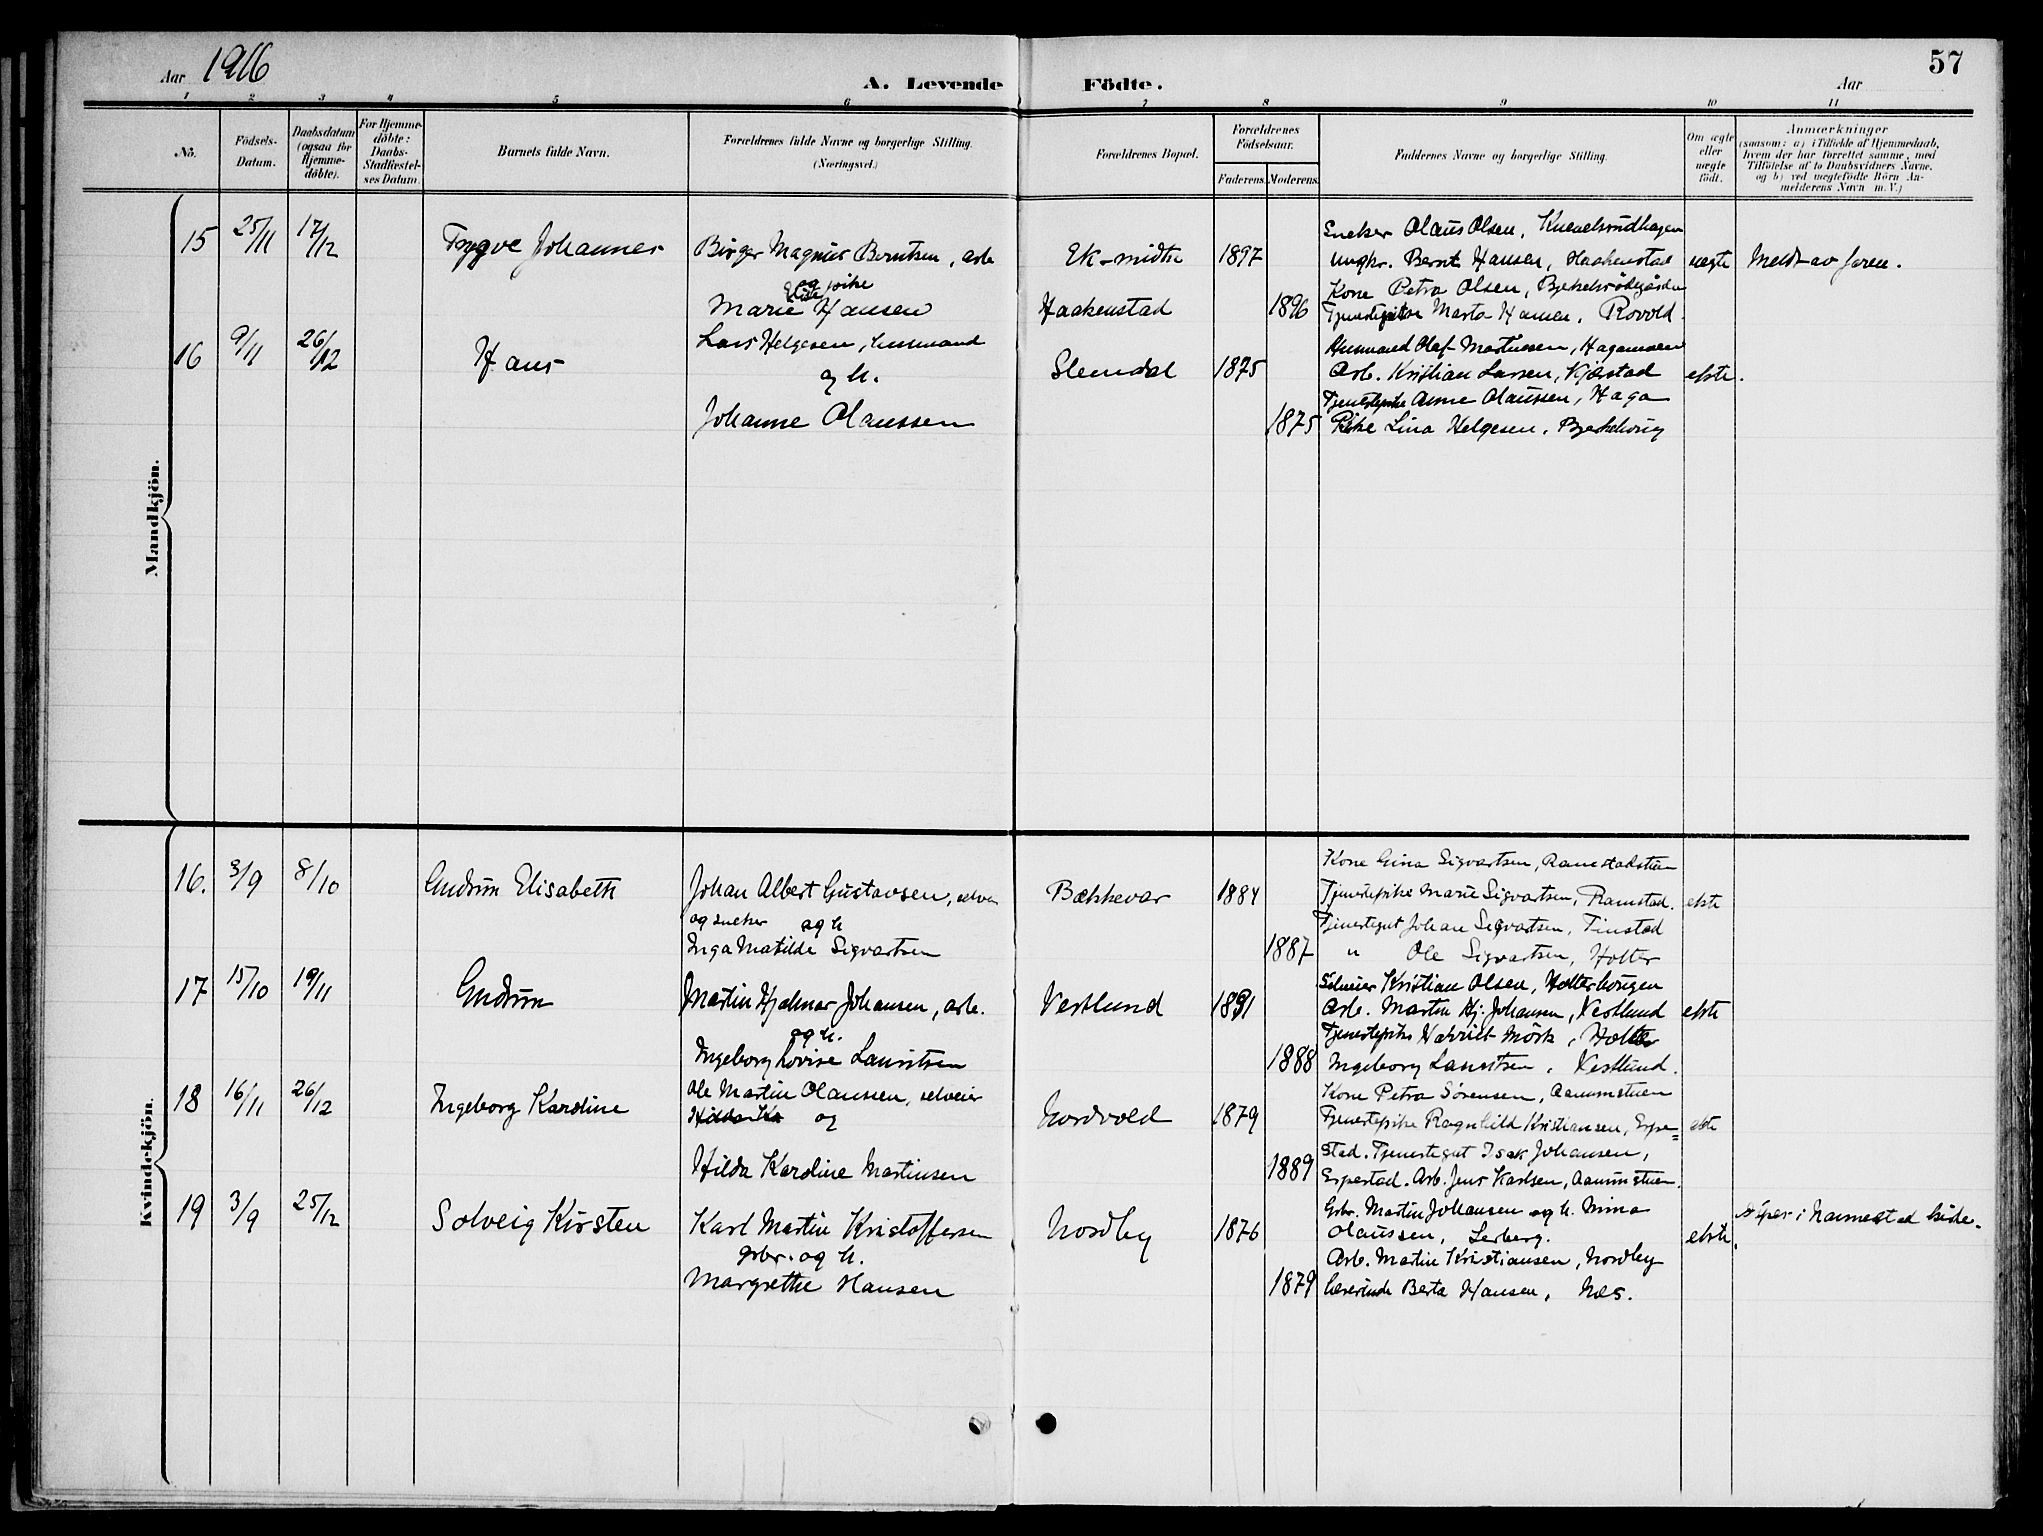 57
Aar 1916
A. Levende Födte.
Aar
1 2 3 4 5 6 7 8 9 10 11
No.
Födsels-Datum.
Daabsdatum (ogsaa for Hjemme-döbte).
For Hjemme-döbte: Daabs-Stadfæstel-ses Datum.
Barnets fulde Navn.
Forældrenes fulde Navne og borgerlige Stilling.
(Næringsvei.)
Forældrenes Bopæl.
Forældrenes Födselsaar.
Faderens. Moderens.
Faddernes Navne og borgerlige Stilling.
Om ægte eller uægte födt.
Anmærkninger
(saasom: a) i Tilfælde af Hjemmedaab,
hvem der har forrettet samme, med
Tilföielse af to Daabsvidners Navne.
og b) ved uægtefödte Börn An-
melderens Navn m. V.)
Mandkjön.
15 25/11 17/12 Trygve Johannes Birger Magnus Berntsen, arb.
og pike
Marie Hansen
Ek-midtre 1897
Haakenstad 1896
Snekker Olaus Olsen,
Ungkr. Bernt Hansen, Haakenstad
Kone Petra Olsen,
Tjenestepike Marta Hansen, Rovold.
uegte Meldt av faren.
16 9/11 26/12 Hans Lars Helgesen, husmand
og h.
Johanne Olaussen
Slemdal 1875
1875
Husmand Olaf Martinsen, Hagamoen
Arb. Kristian Larsen, Kjærstad
Tjenestepike Anne Olaussen, Haga
Pike Lina Helgesen,
ekte.
Kvindekjön.
16. 3/9 8/10 Gudrun Elisabeth Johan Albert Gustavsen, selvei
og snekker og h
Inga Matilde Sigvartsen
Bækkevar 1884
1887
Kone Gina Sigvartsen, Ramstadstuen
Tjenestepike Marie Sigvartsen, Ramstad.
Tjenestegut Johan Sigvartsen, Finstad
" Ole Sigvartsen, Holter
ekte
17 15/10 19/11 Gudrun Martin Hjalmar Johansen, arb.
og h.
Ingeborg Lovise Lauritsen
Vestlund 1891
1888
Selveier Kristian Olsen, Holterhaugen
Arb. Martin Hj. Johansen, Vestlund
Tjenestepike Harriet Mörk, Holter
Ingeborg Lauritsen, Vestlund.
ekte
18 16/11 26/12 Ingeborg Karoline Ole Martin Olaussen, selveier
og
Hilda Karoline Martinsen
Nordvold 1879
1889
Kone Petra Sörensen, Aammstuen
Tjenestepike Ragnhild Kristiansen, Espe=
stad. Tjenestegut Isak Johansen,
Espestad. Arb. Jens Karlsen, Aammstuen.
ekte
19 3/9 25/12 Solveig Kirsten Karl Martin Kristoffersen
gbr. og h.
Margrethe Hansen
Nordby 1876
1879
Gbr. Martin Johansen og h. Mina
Olaussen, Lerberg.
Arb. Martin Kristiansen, Nordby
Lærerinde Berta Hansen, Næs.
ekte.
i Nannestad kirke.